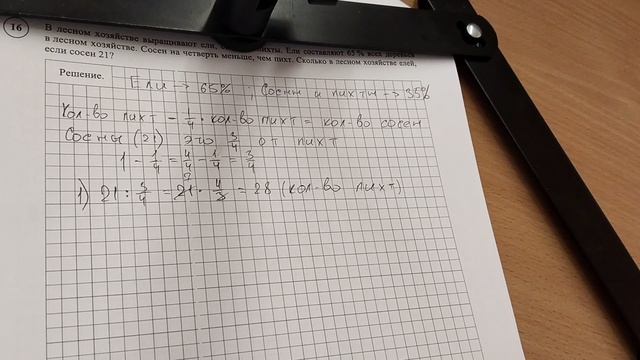 16
В лесном хозяйстве выращивают ели, пихты. Ели составляют 65% всех деревьев
в лесном хозяйстве. Сосен на четверть меньше, чем пихт. Сколько в лесном хозяйстве елей,
если сосен 21?
Решение.
Ели → 65% ; Сосны и пихты → 35%
Кол-во пихт - 1/4 · кол-во пихт = кол-во сосен
Сосны (21) это 3/4 от пихт
1 - 1/4 = 4/4 - 1/4 = 3/4
1) 21 : 3/4 = 21 · 4/3 = 28 (кол-во пихт)